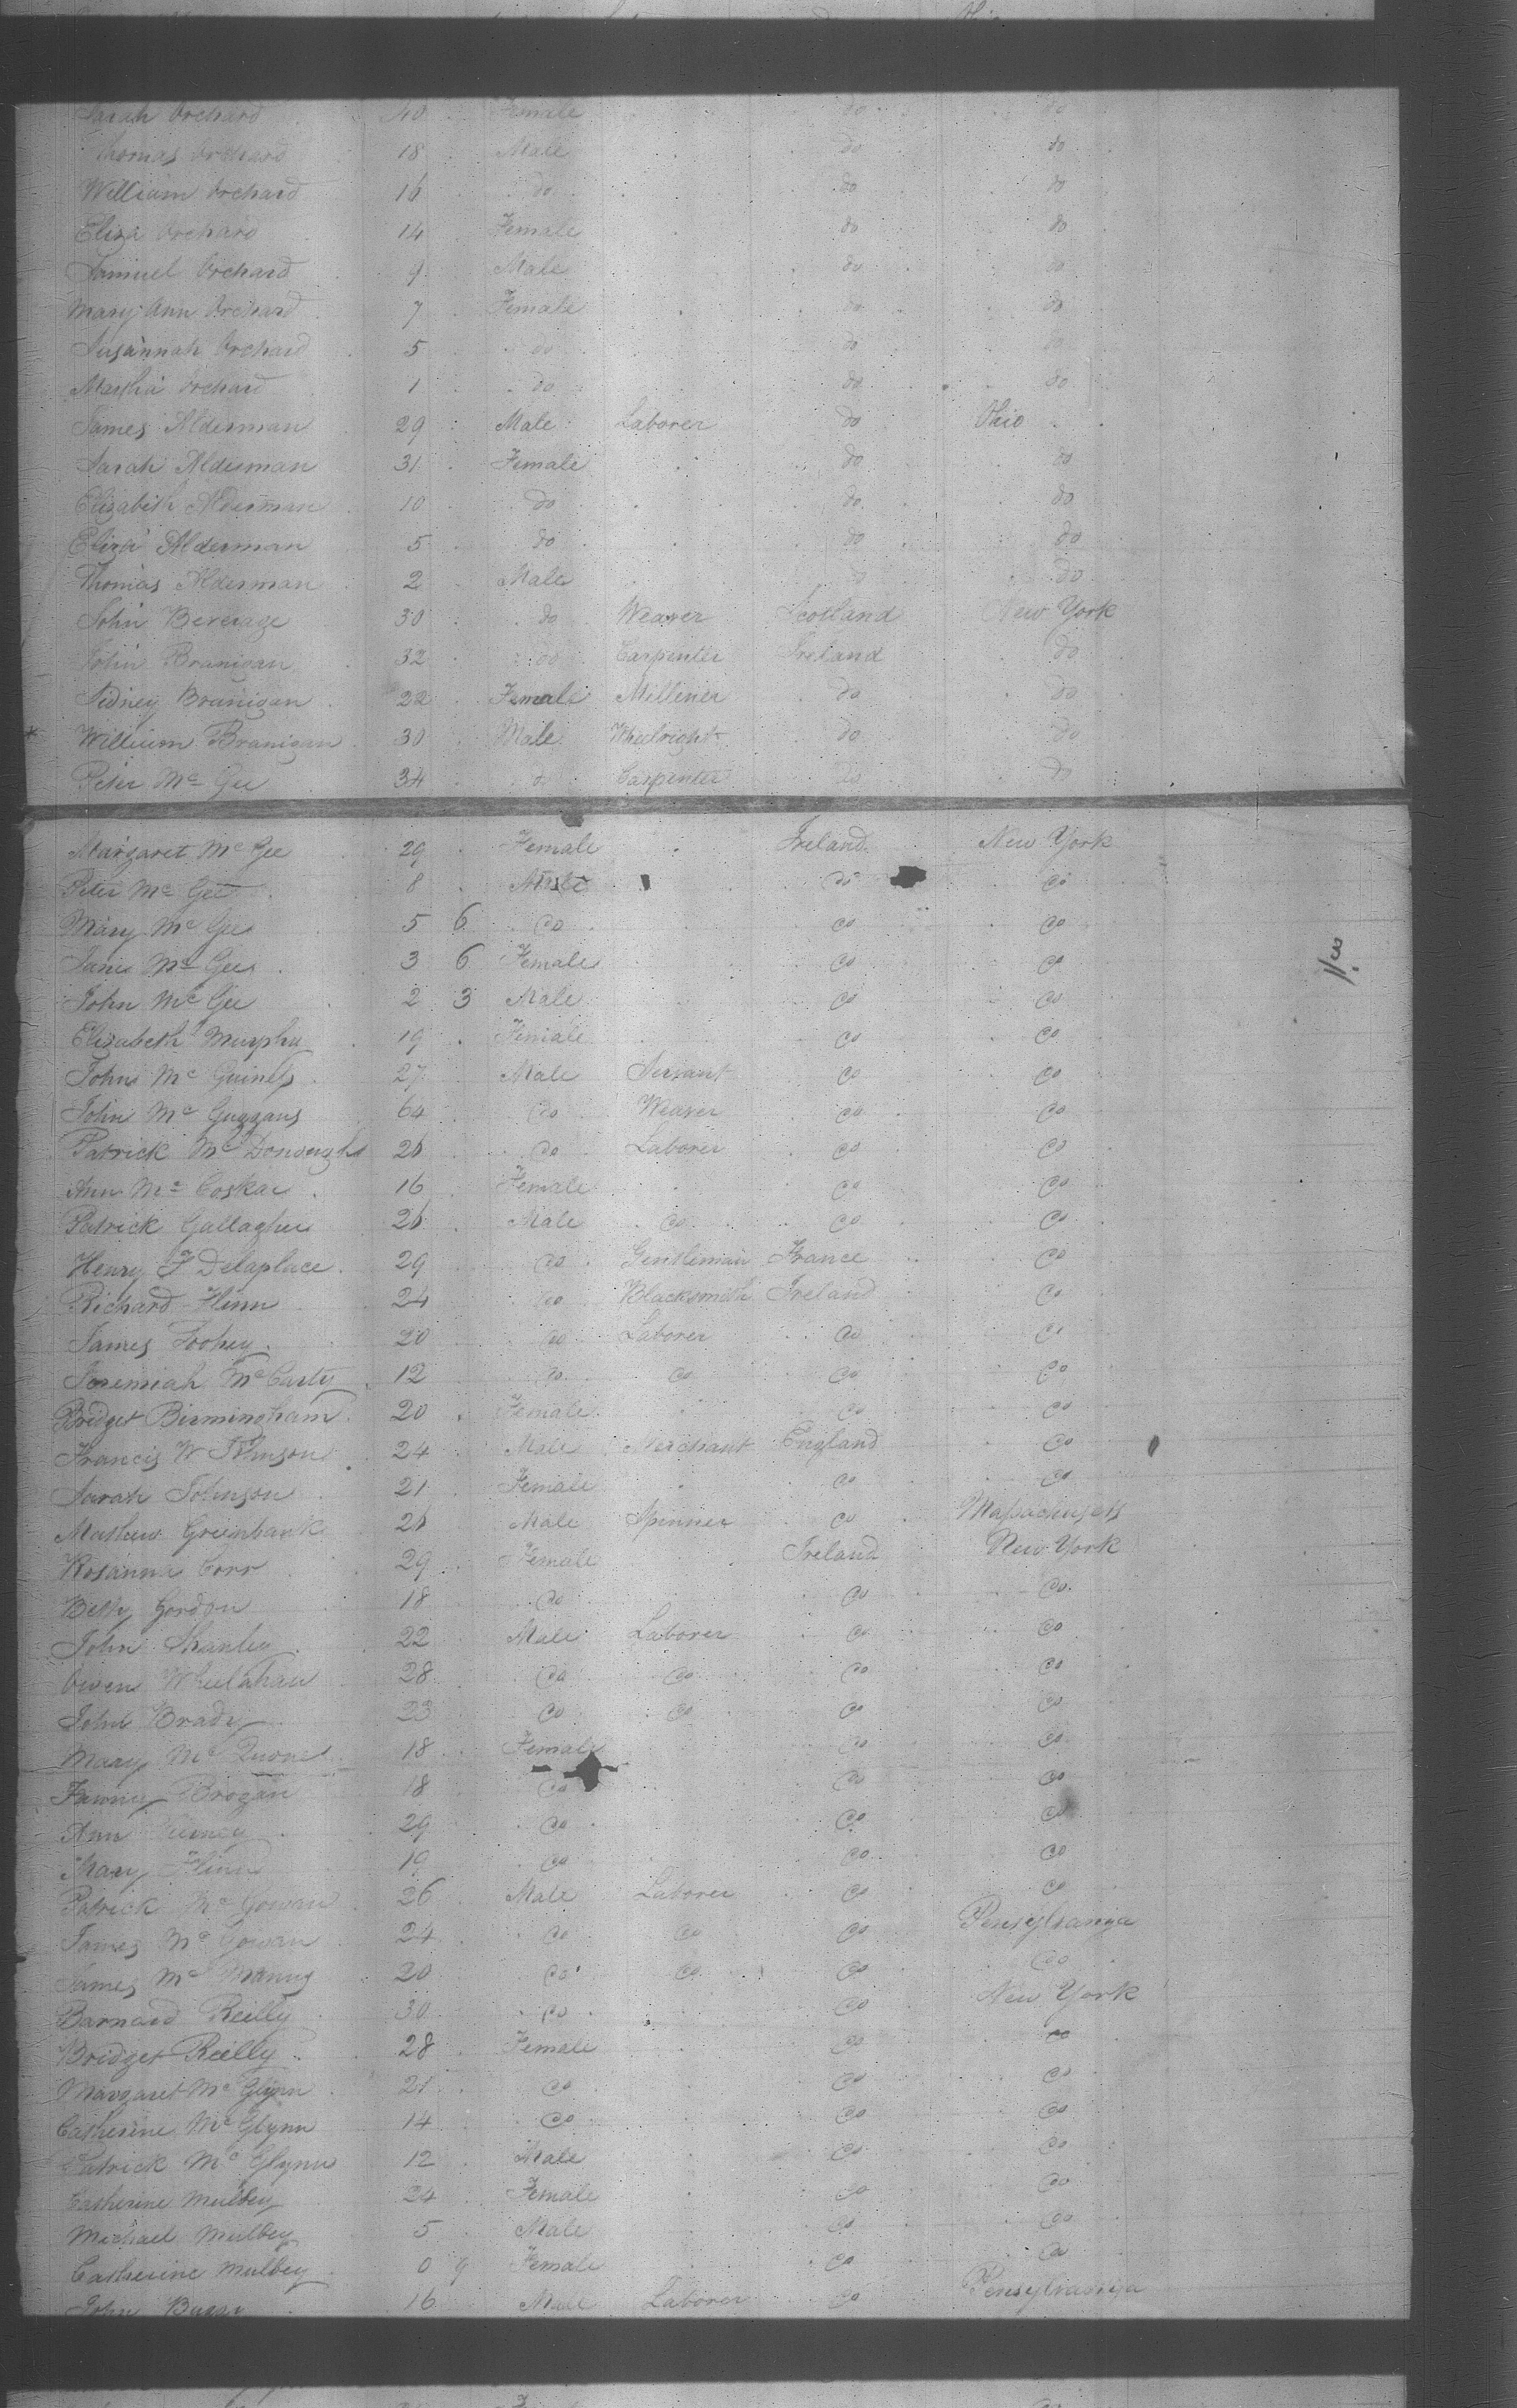 Sarah Orchard 40 Female do do
Thomas Orchard 18 Male do do
William Orchard 16 do do do
Eliza Orchard 14 Female do do
Samuel Orchard 9 Male do do
Mary Ann Orchard 7 Female do do
Susannah Orchard 5 do do do
Martha Orchard 1 do do do
James Alderman 29 Male Laborer do Ohio
Sarah Alderman 31 Female do do
Elizabeth Alderman 10 do do do
Eliza Alderman 5 do do do
Thomas Alderman 2 Male do do
John Beverage 30 do Weaver Scotland New York
John Branigan 32 do Carpenter Ireland do
Sidney Branigan 22 Female Milliner do do
William Branigan 30 Male Wheelright do do
Peter Mc Gee 34 do Carpenter do do
Margaret Mc Gee 29 Female Ireland New York
Peter Mc Gee 8 Male do do
Mary Mc Gee 5 6 do do do
Jane Mc Gee 3 6 Female do do
John Mc Gee 2 3 Male do do
Elizabeth Murphy 19 Female do do
John Mc Guiness 27 Male Servant do do
John Mc 64 do Weaver do do
Patrick Mc 26 do Laborer do do
Ann Mc Coskar 16 Female do do
Patrick Gallagher 26 Male do do do
Henry F Delaplace 29 do Gentleman France do
Richard Flinn 24 do Blacksmith Ireland do
James 20 do Laborer do do
Jeremiah McCarty 12 do do do do
Bridget Birmingham 20 Female do do
Francis W Johnson 24 Male Merchant England do
Sarah Johnson 21 Female do do
Mathew Greenbank 26 Male Spinner do Massachusets
Rosanna Corr 29 Female Ireland New York
Betty Gordon 18 do do do
John Shanley 22 Male Laborer do do
Owen Wheelahan 28 do do do do
John Brady 23 do do do do
Mary Mc 18 Female do do
Brogan 18 do do do
Ann 29 do do do
Mary Flinn 19 do do do
Patrick Mc Gowan 26 Male Laborer do do
James Mc Gowan 24 do do do Pensylvania
James Mc Manus 20 do do do do
Barnard Reilly 30 do do New York
Bridget Reilly 28 Female do do
Margaret Mc Glynn 21 do do do
Catherine Mc Glynn 14 do do do
Patrick Mc Glynn 12 Male do do
Catherine Mulbey 24 Female do do
Michael Mulbey 5 Male do do
Catherine Mulbey 0 9 Female do do
John 16 Male Laborer do Pensylvania